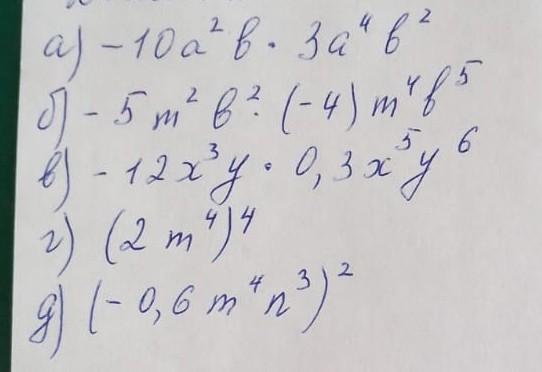 а) -10a²b · 3a⁴b²
б) -5m²b² · (-4)m⁴b⁵
в) -12x³y · 0,3x⁵y⁶
г) (2m⁴)⁴
д) (-0,6m⁴n³)²